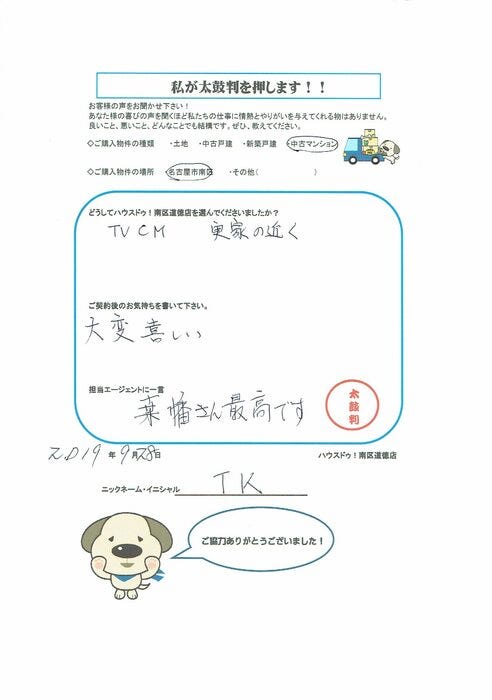 私が太鼓判を押します！！
お客様の声をお聞かせ下さい！
あなた様の喜びの声を聞くほど私たちの仕事に情熱とやりがいを与えてくれる物はありません。
良いこと、悪いこと、どんなことでも結構です。ぜひ、教えてください。
◇ご購入物件の種類 ・土地 ・中古戸建 ・新築戸建 ・中古マンション
◇ご購入物件の場所 ・名古屋市南区 ・その他( )
どうしてハウスドゥ！南区道徳店を選んでくださいましたか？
TV CM 実家の近く
ご契約後のお気持ちを書いて下さい。
大変喜しい
担当エージェントに一言
葉幡さん最高です
太鼓判
2019年9月28日 ハウスドゥ！南区道徳店
ニックネーム・イニシャル TK
ご協力ありがとうございました！